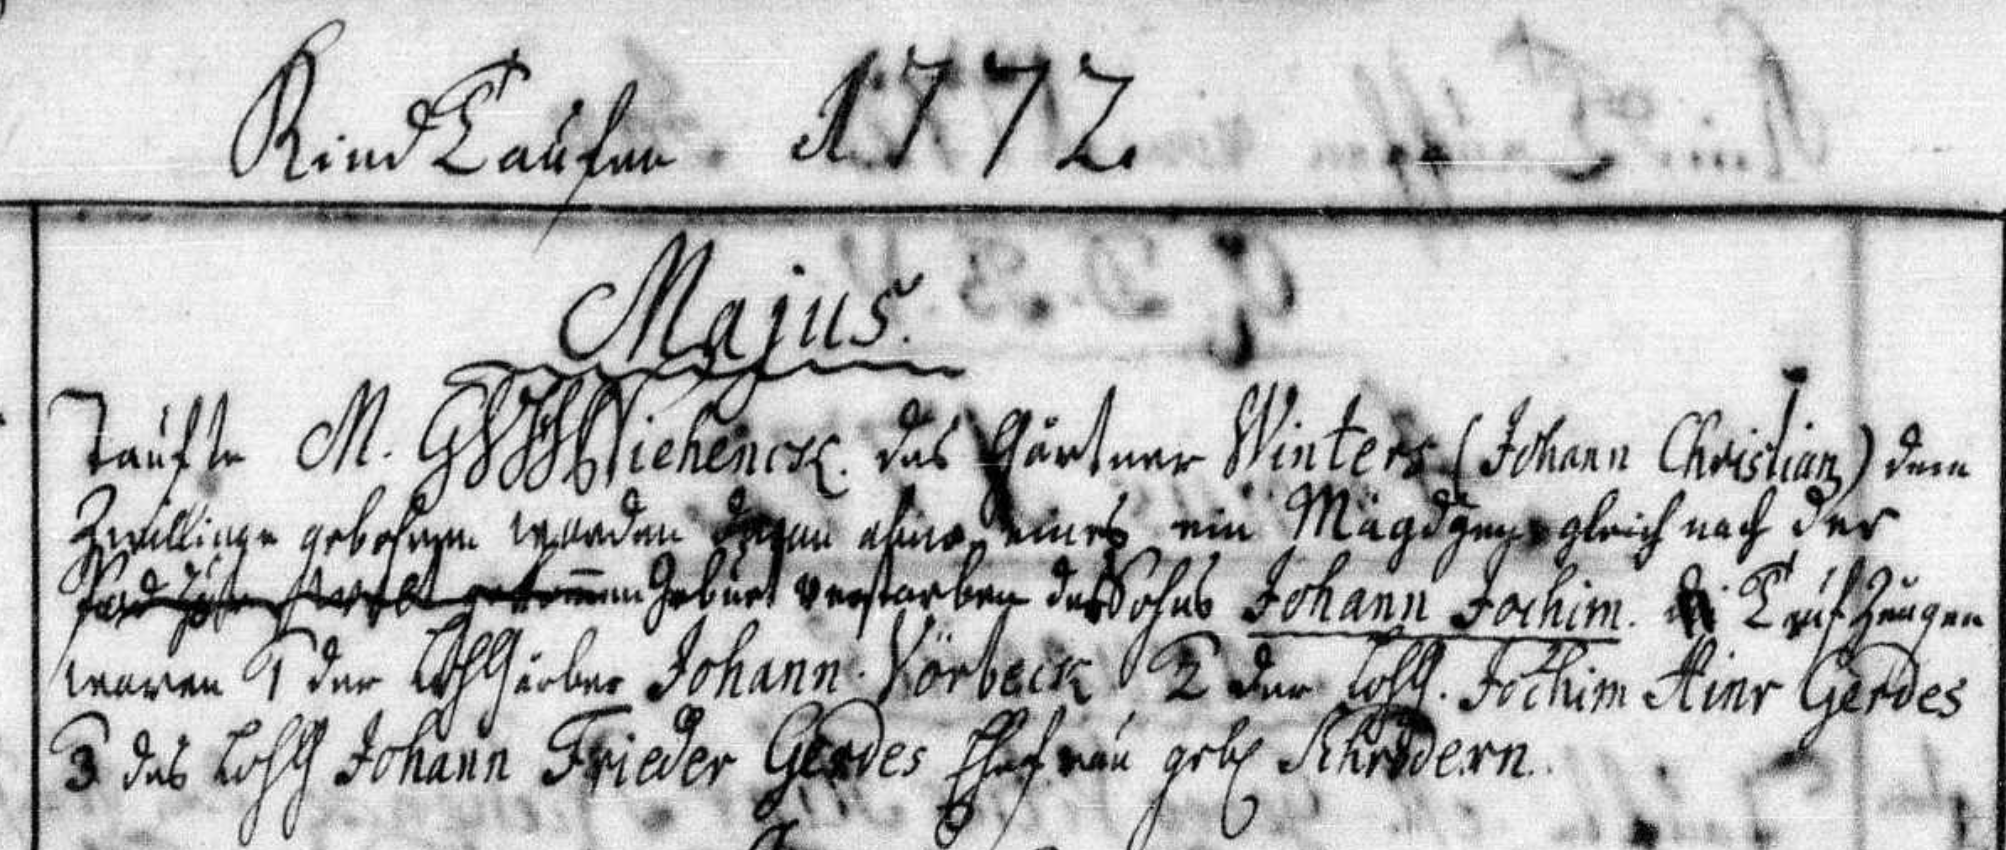 Kind Taufen 1772.
Majus.
Taufte M. des Gärtner Winters (Johann Christian) dem
Zwillinge gebohren worden davon eines ein Mägdgen gleich nach der
Geburt verstorben des Sohns Johann Jochim. Taufzeugen
waren 1 der LohGärber Johann Vörbeck 2 der LohG. Jochim Hinr Gerdes
3 des LohG Johann Frieder Gerdes Ehefrau geb Schrödern.